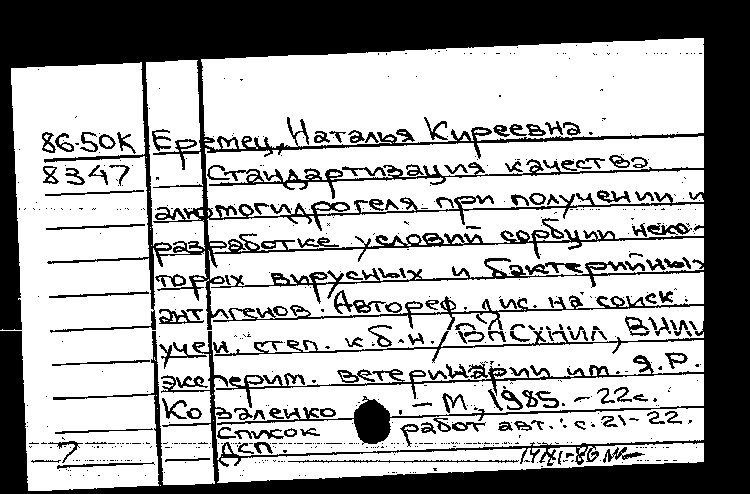 86-50К Еремец, Наталья Киреевна.
8347 . Стандартизация качества
алюмогидрогеля при получении и
разработке условий сорбции неко-
торых вирусных и бактерийных
антигенов. Автореф. дис. на соиск.
учен. степ. к.б.н. / ВАСХНИЛ, ВНИИ
эксперим. ветеринарии им. Я.Р.
Коваленко . – М., 1985. – 22с.
Список работ авт.: с. 21-22.
ДСП.